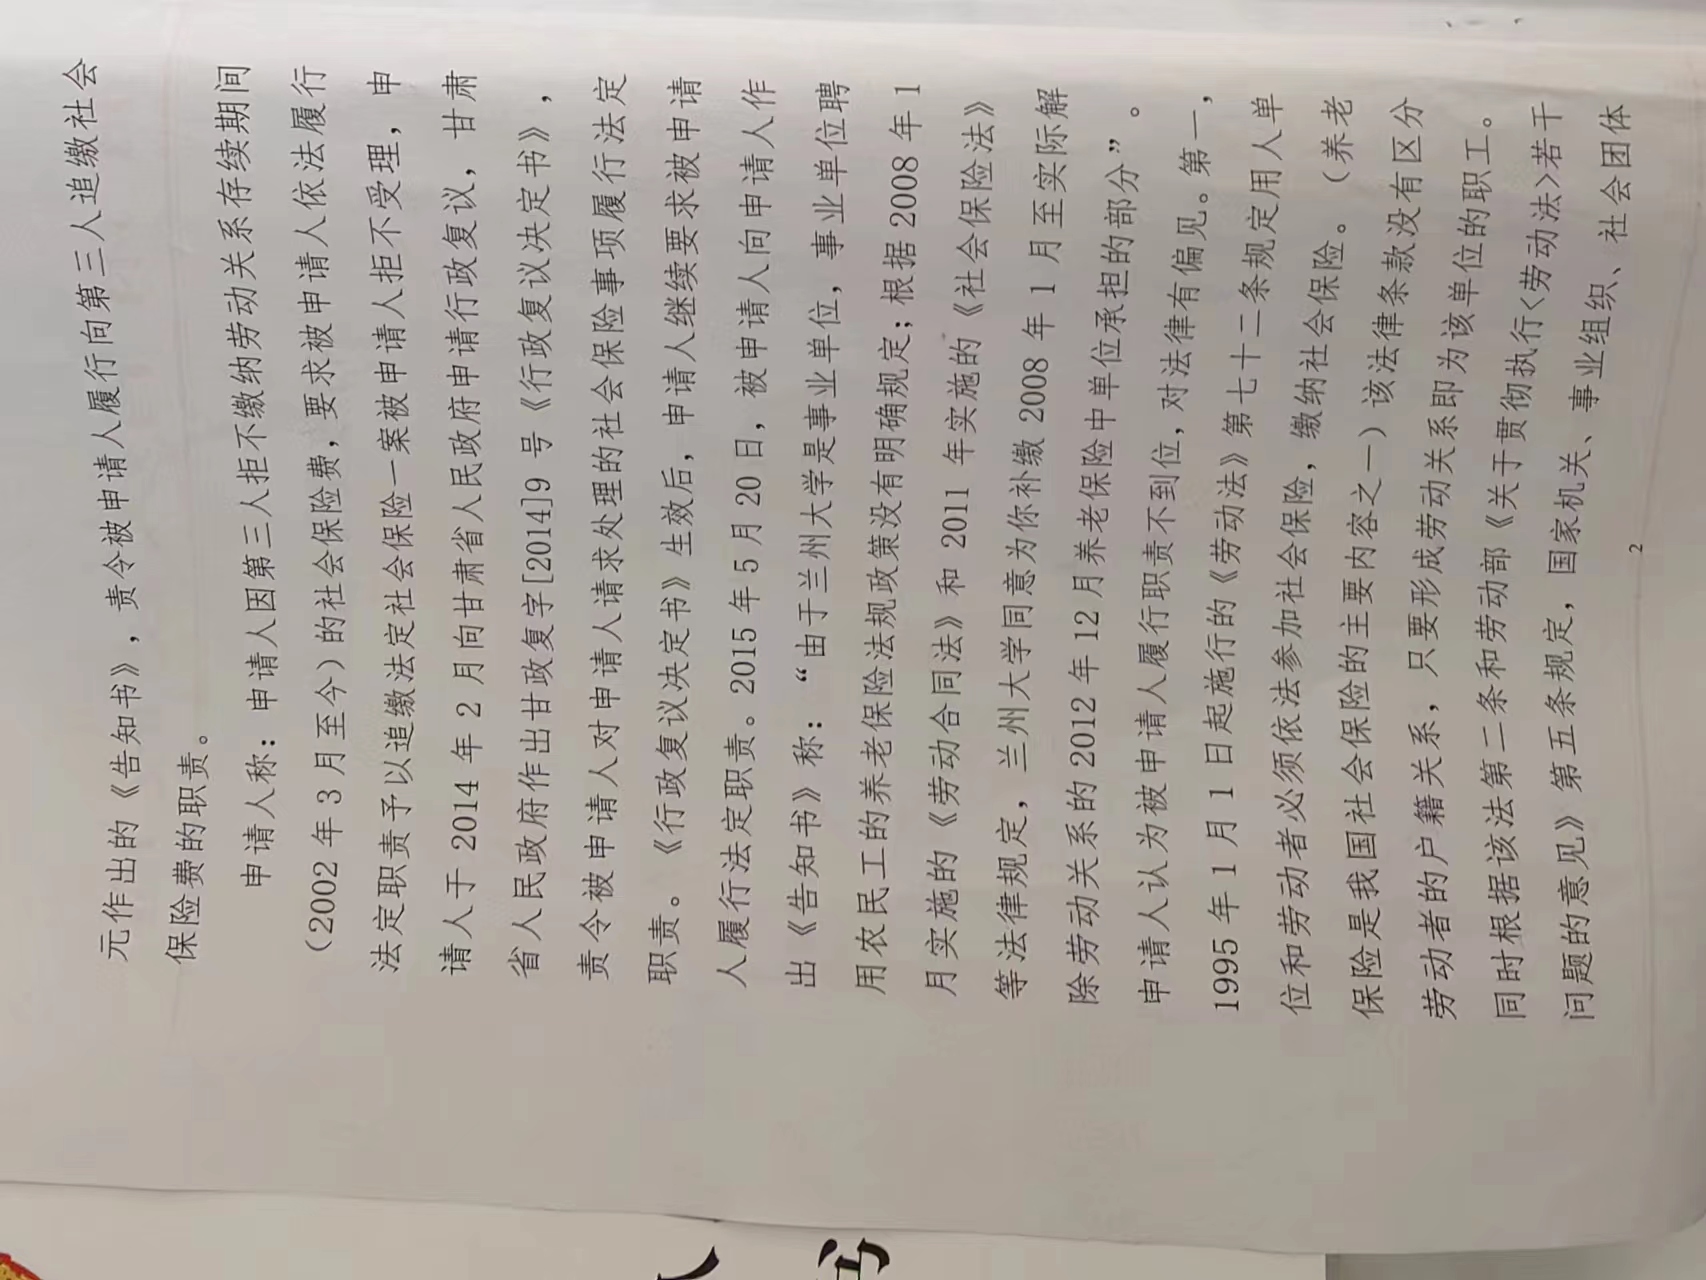 元作出的《告知书》，责令被申请人履行向第三人追缴社会
保险费的职责。
申请人称：申请人因第三人拒不缴纳劳动关系存续期间
（2002 年 3 月至今）的社会保险费，要求被申请人依法履行
法定职责予以追缴法定社会保险一案被申请人拒不受理，申
请人于 2014 年 2 月向甘肃省人民政府申请行政复议，甘肃
省人民政府作出甘政复字[2014]9 号《行政复议决定书》，
责令被申请人对申请人请求处理的社会保险事项履行法定
职责。《行政复议决定书》生效后，申请人继续要求被申请
人履行法定职责。2015 年 5 月 20 日，被申请人向申请人作
出《告知书》称：“由于兰州大学是事业单位，事业单位聘
用农民工的养老保险法规政策没有明确规定；根据 2008 年 1
月实施的《劳动合同法》和 2011 年实施的《社会保险法》
等法律规定，兰州大学同意为你补缴 2008 年 1 月至实际解
除劳动关系的 2012 年 12 月养老保险中单位承担的部分”。
申请人认为被申请人履行职责不到位，对法律有偏见。第一，
1995 年 1 月 1 日起施行的《劳动法》第七十二条规定用人单
位和劳动者必须依法参加社会保险，缴纳社会保险。（养老
保险是我国社会保险的主要内容之一）该法律条款没有区分
劳动者的户籍关系，只要形成劳动关系即为该单位的职工。
同时根据该法第二条和劳动部《关于贯彻执行<劳动法>若干
问题的意见》第五条规定，国家机关、事业组织、社会团体
2